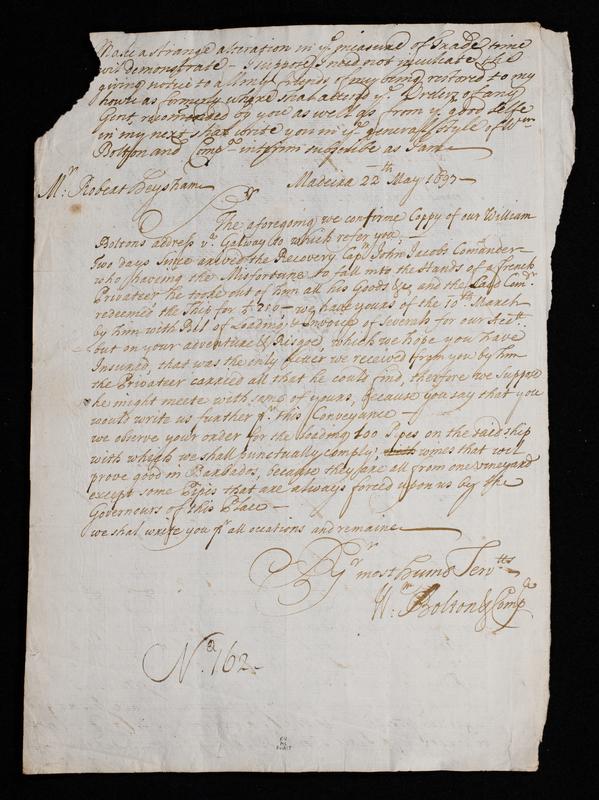 Make a strange alteration in yᵉ measure of Trade time
wil demonstrate - I suppose I need not
giving notice to all my friends of my being restored to my
house as formerly where I shal attend yᵉ Orders of any
Gent. by you as well as from yʳ good Selfe
in my next shal write you in yᵉ general Style of Wᵐ
Bolton and Compᵃ interim subscribe as I am
Mʳ: Robert Heysham Madeira 22ᵗʰ May 1697 -
Sʳ
The aforegoing we confirme Coppy of our William
Boltons address pʳ Galway to which refer you.
Two days since arived the Recovery Capⁿ John Jacobs Comander
who haveing the Misfortune to fall into the Hands of a french
Privateer he took out of him all his Goods &ᶜ and the said Comʳ
redeemed the Ship for 210 - we have yours of the 10ᵗʰ March
by him with Bill of Loading & Invoice of Severals for our Accᵗ.
but on your adventure & Risgoe, which we hope you have
Insured, that was the only letter we received from you by him
the Privateer carried all that he could find, therefore we Suppose
he might meete with some of yours, because you say that you
would write us further pʳ this Conveyance -
we observe your order for the loading 100 Pipes on the said ship
with which we shall punctually comply, wines that wil
prove good in Barbados, because they are all from one vineyard
except some Pipes that are always forced upon us by the
Governours of this Place -
we shal write you pʳ all occations and remaine
Sʳ
Yʳ most humb Servᵗˢ
Wᵐ: Bolton & Compᵃ
Nᵒ. 162.